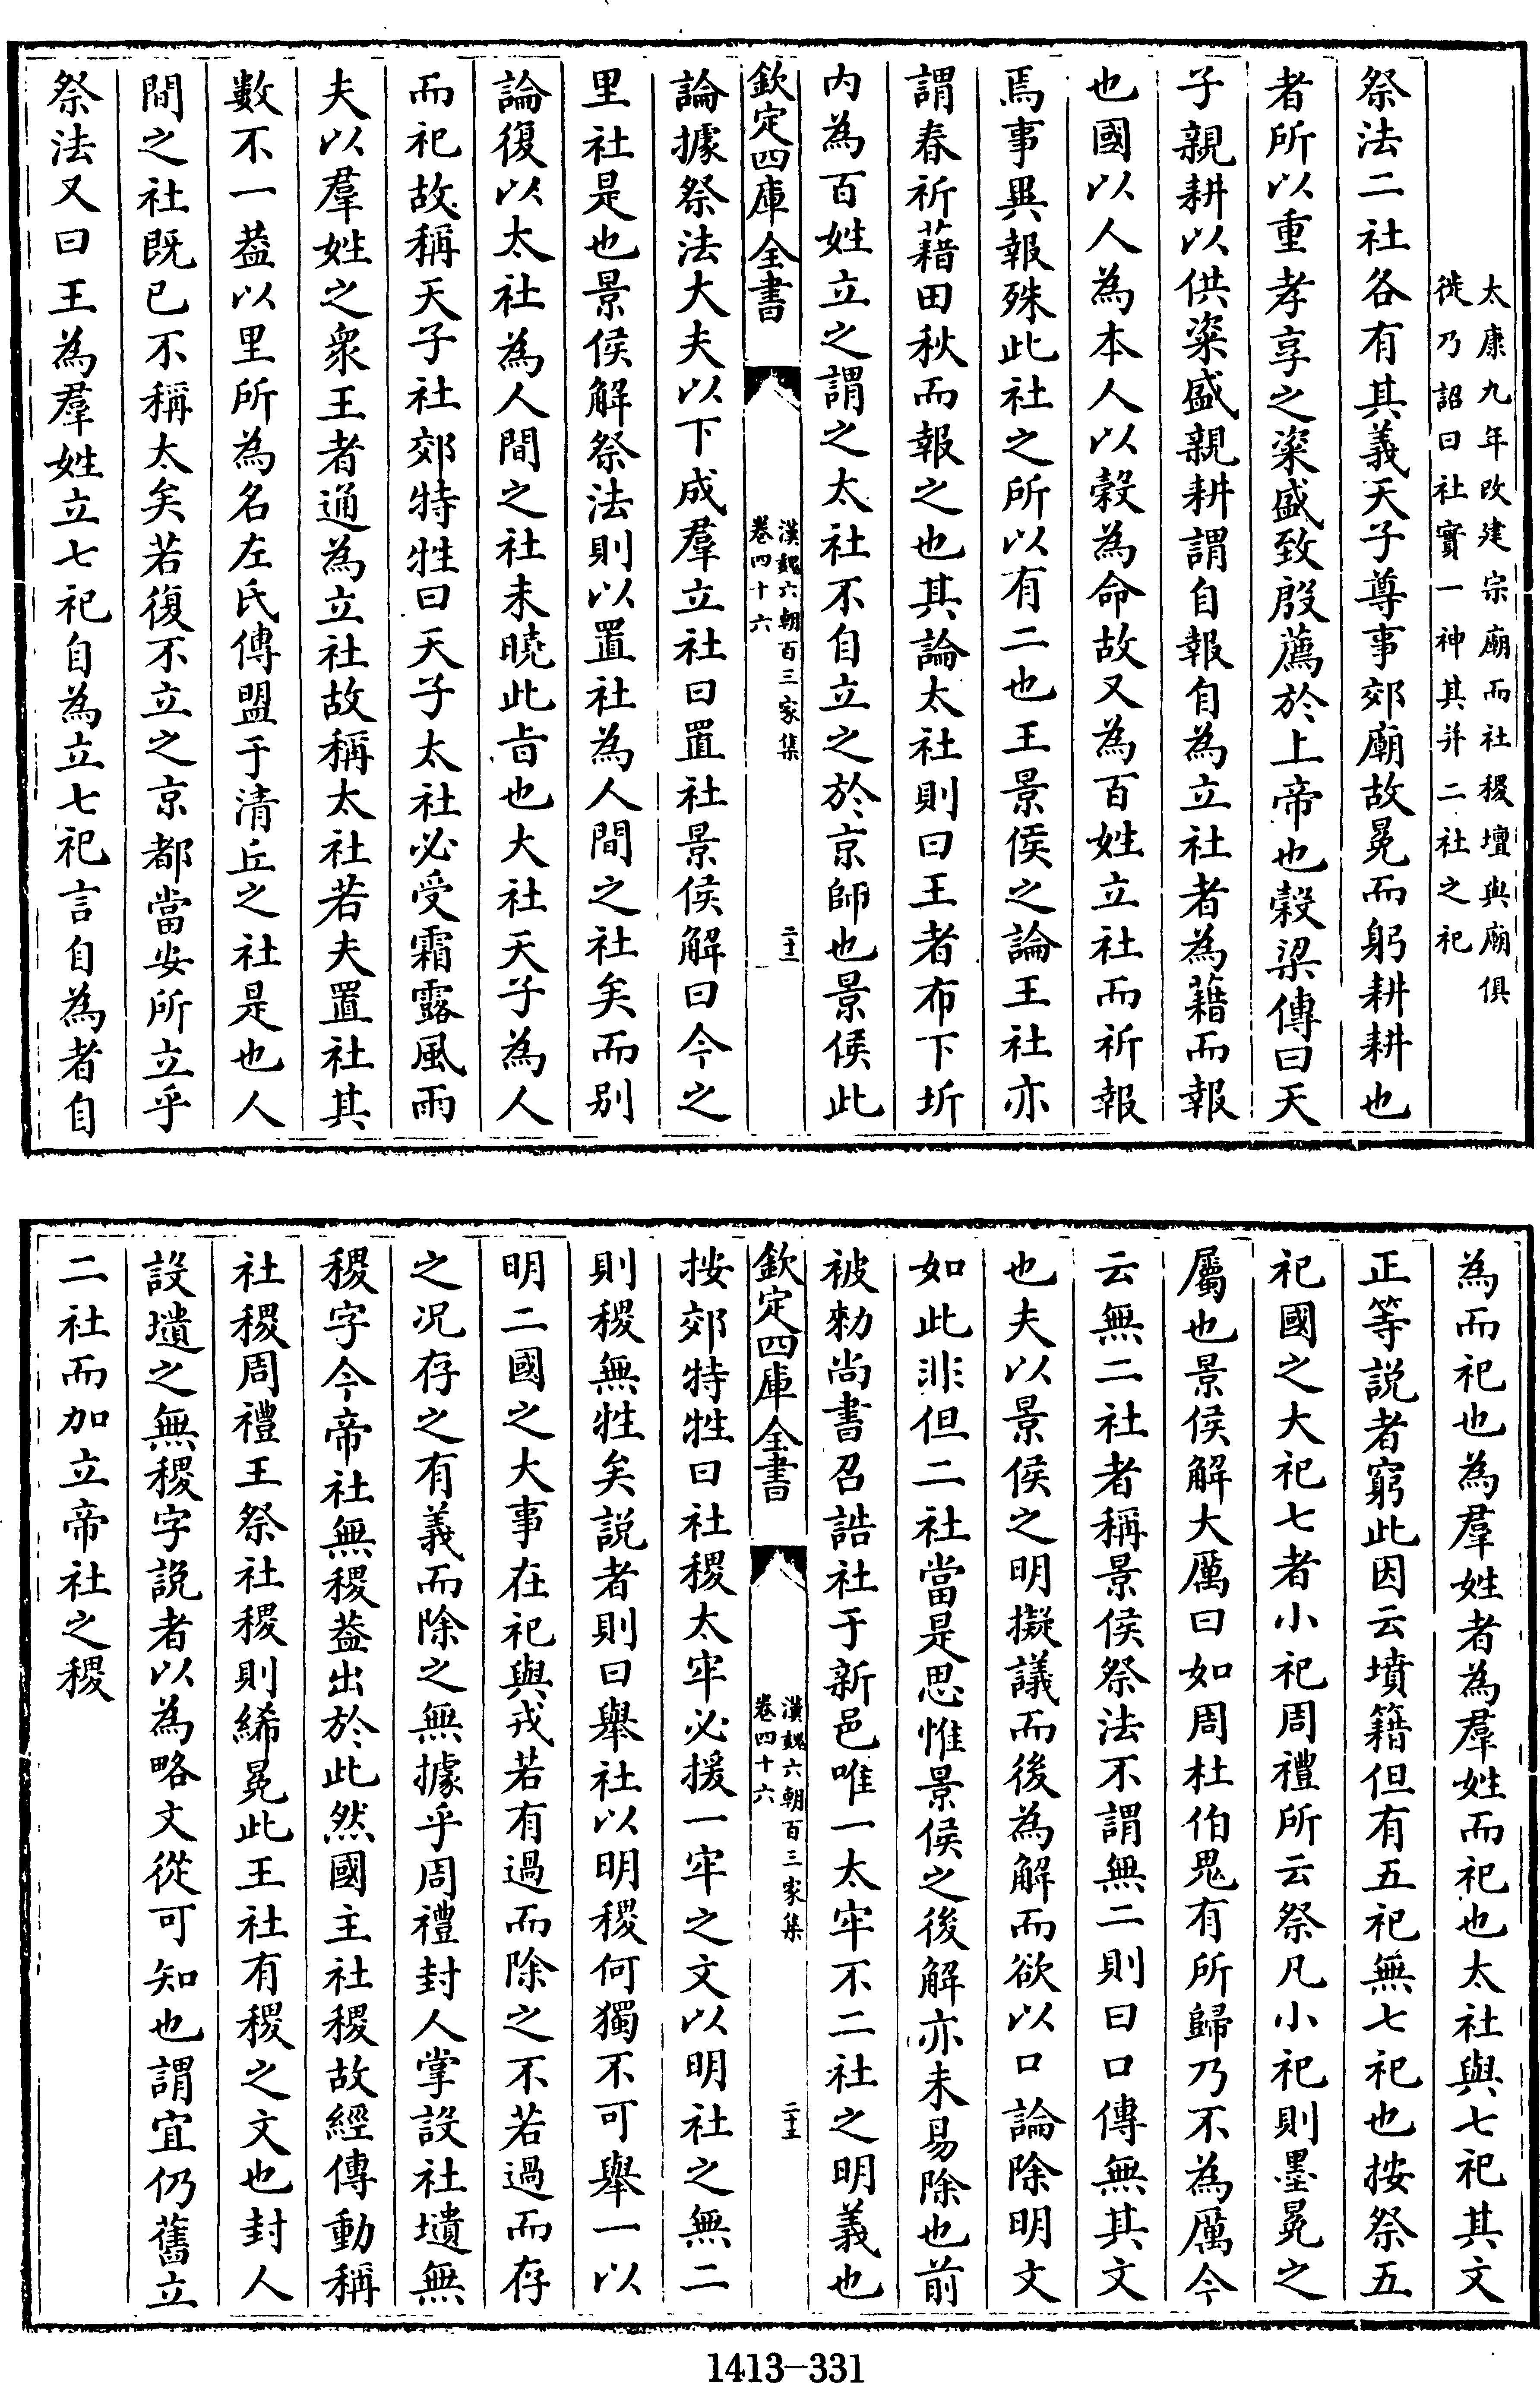 太康九年改建宗廟而社稷壇與廟俱
徙乃詔曰社實一神其并二社之祀
祭法二社各有其義天子尊事郊廟故冕而躬耕耕也
者所以重孝享之粢盛致殷薦於上帝也穀梁傳曰天
子親耕以供粢盛親耕謂自報自為立社者為藉而報
也國以人為本人以穀為命故又為百姓立社而祈報
焉事異報殊此社之所以有二也王景侯之論王社亦
謂春祈藉田秋而報之也其論太社則曰王者布下圻
内為百姓立之謂之太社不自立之於京師也景侯此
欽定四庫全書
漢魏六朝百三家集
卷四十六
二十二
論據祭法大夫以下成羣立社曰置社景侯解曰今之
里社是也景侯解祭法則以置社為人間之社矣而别
論復以太社為人間之社未曉此㫖也大社天子為人
而祀故稱天子社郊特牲曰天子太社必受霜露風雨
夫以羣姓之衆王者通為立社故稱太社若夫置社其
數不一葢以里所為名左氏傳盟于清丘之社是也人
間之社既已不稱太矣若復不立之京都當安所立乎
祭法又曰王為羣姓立七祀自為立七祀言自為者自
為而祀也為羣姓者為羣姓而祀也太社與七祀其文
正等説者窮此因云墳籍但有五祀無七祀也按祭五
祀國之大祀七者小祀周禮所云祭凡小祀則墨冕之
屬也景侯解大厲曰如周杜伯鬼有所歸乃不為厲今
云無二社者稱景侯祭法不謂無二則曰口傳無其文
也夫以景侯之明擬議而後為解而欲以口論除明文
如此非但二社當是思惟景侯之後解亦未易除也前
被勅尚書召誥社于新邑唯一太牢不二社之明義也
欽定四庫全書
漢魏六朝百三家集
卷四十六
二十三
按郊特牲曰社稷太牢必援一牢之文以明社之無二
則稷無牲矣説者則曰舉社以明稷何獨不可舉一以
明二國之大事在祀與戎若有過而除之不若過而存
之况存之有義而除之無據乎周禮封人掌設社壝無
稷字今帝社無稷葢出於此然國主社稷故經傳動稱
社稷周禮王祭社稷則絺冕此王社有稷之文也封人
設壝之無稷字説者以為略文從可知也謂宜仍舊立
二社而加立帝社之稷
1413-331